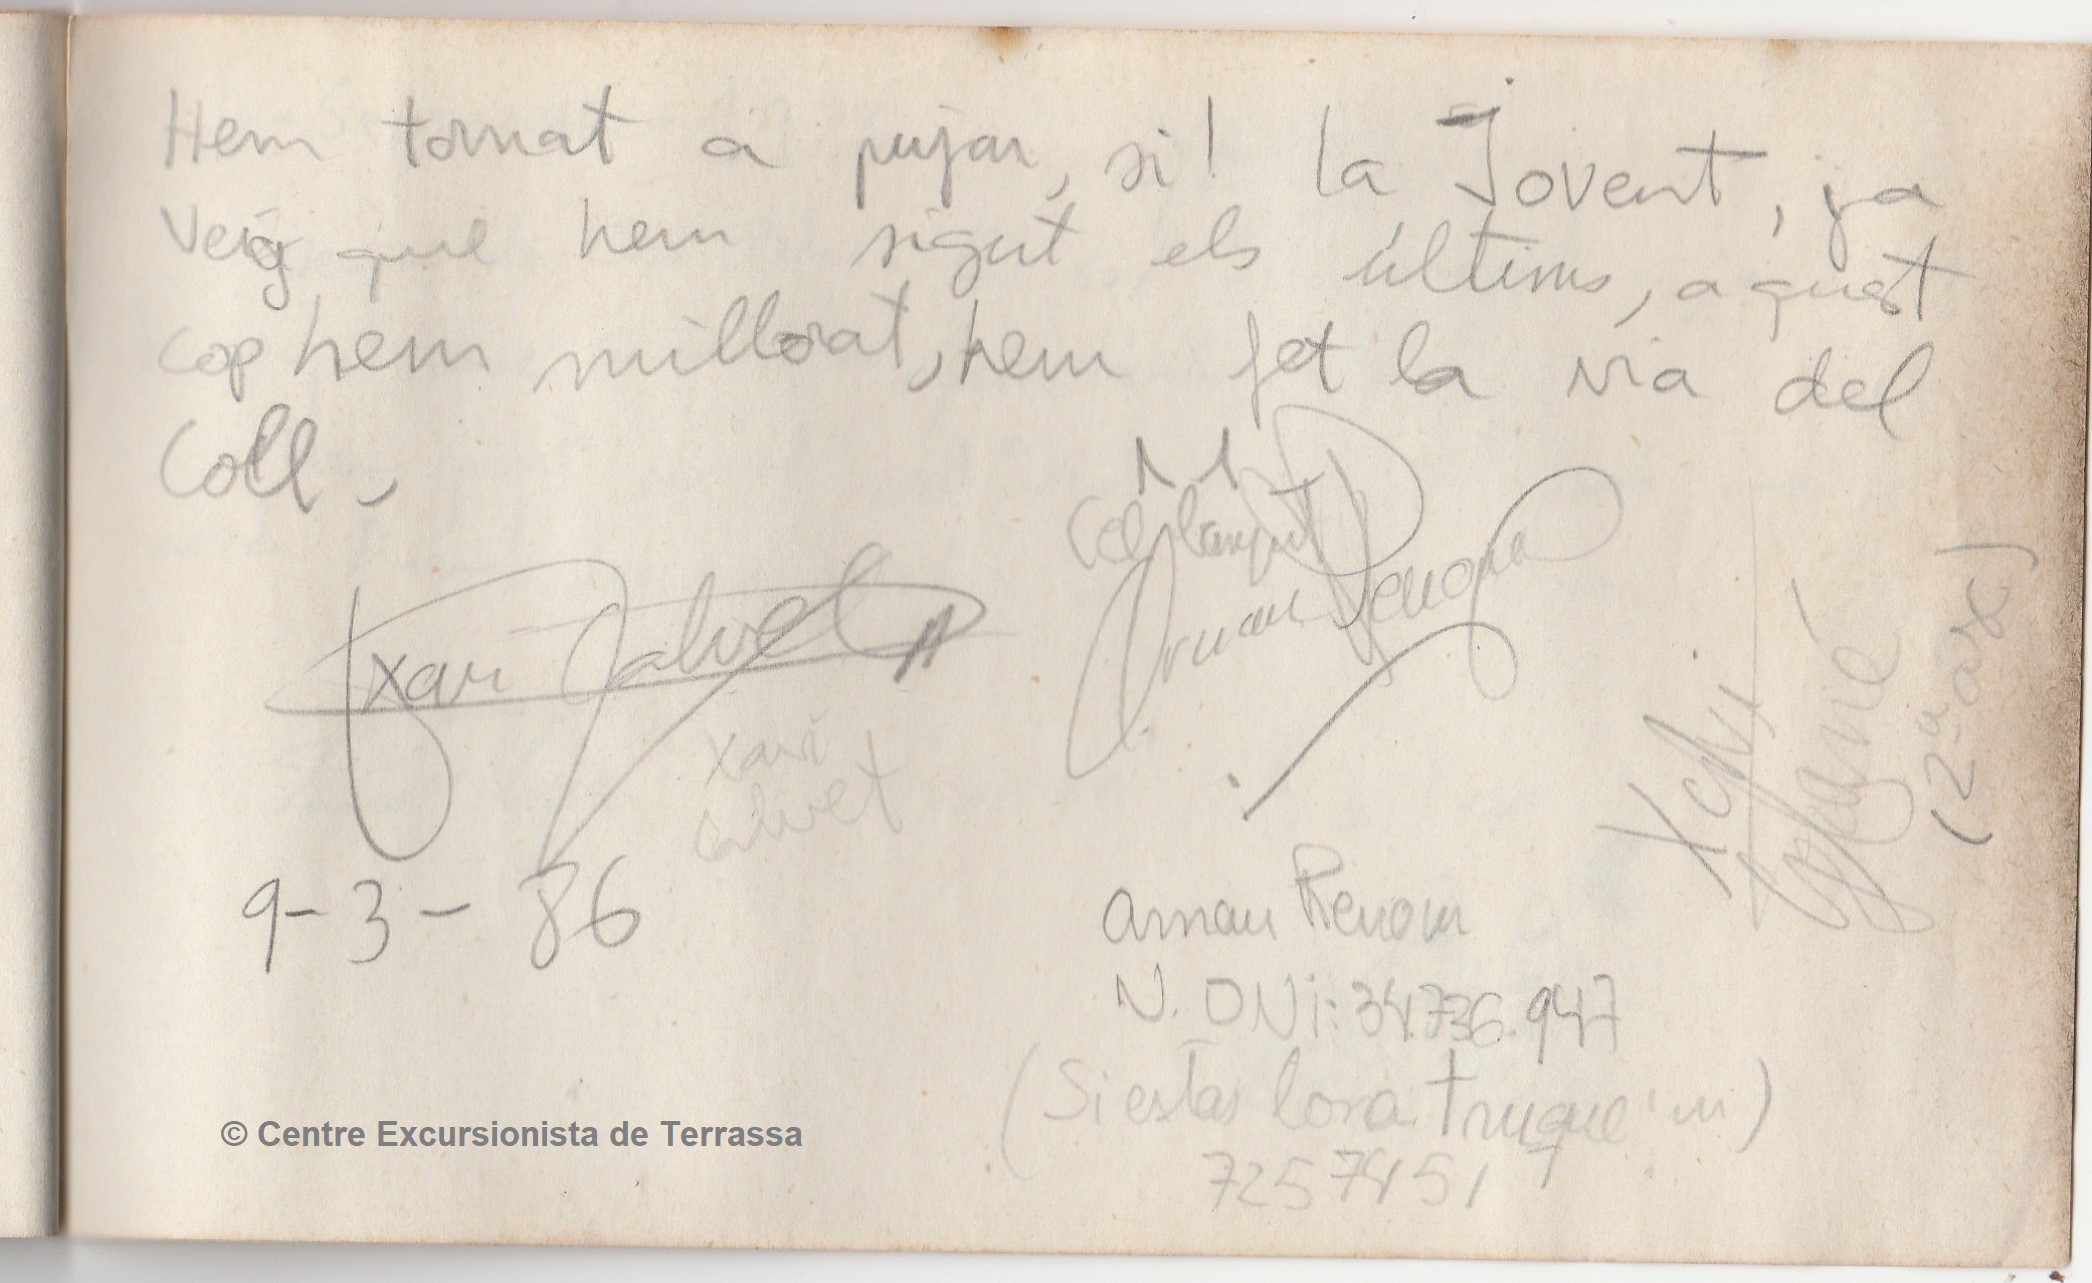 Hem tornat a pujar, si! la Jovent, ja
veig que hem sigut els últims, aquest
cop hem millorat, hem fet la via del
Coll,
Xavi Calvet
Xavi
Calvet
9-3-86
Arnau Renom
Arnau Renom
N. DNi: 34.736.947
(Si estas lona truque'm)
7257451
© Centre Excursionista de Terrassa